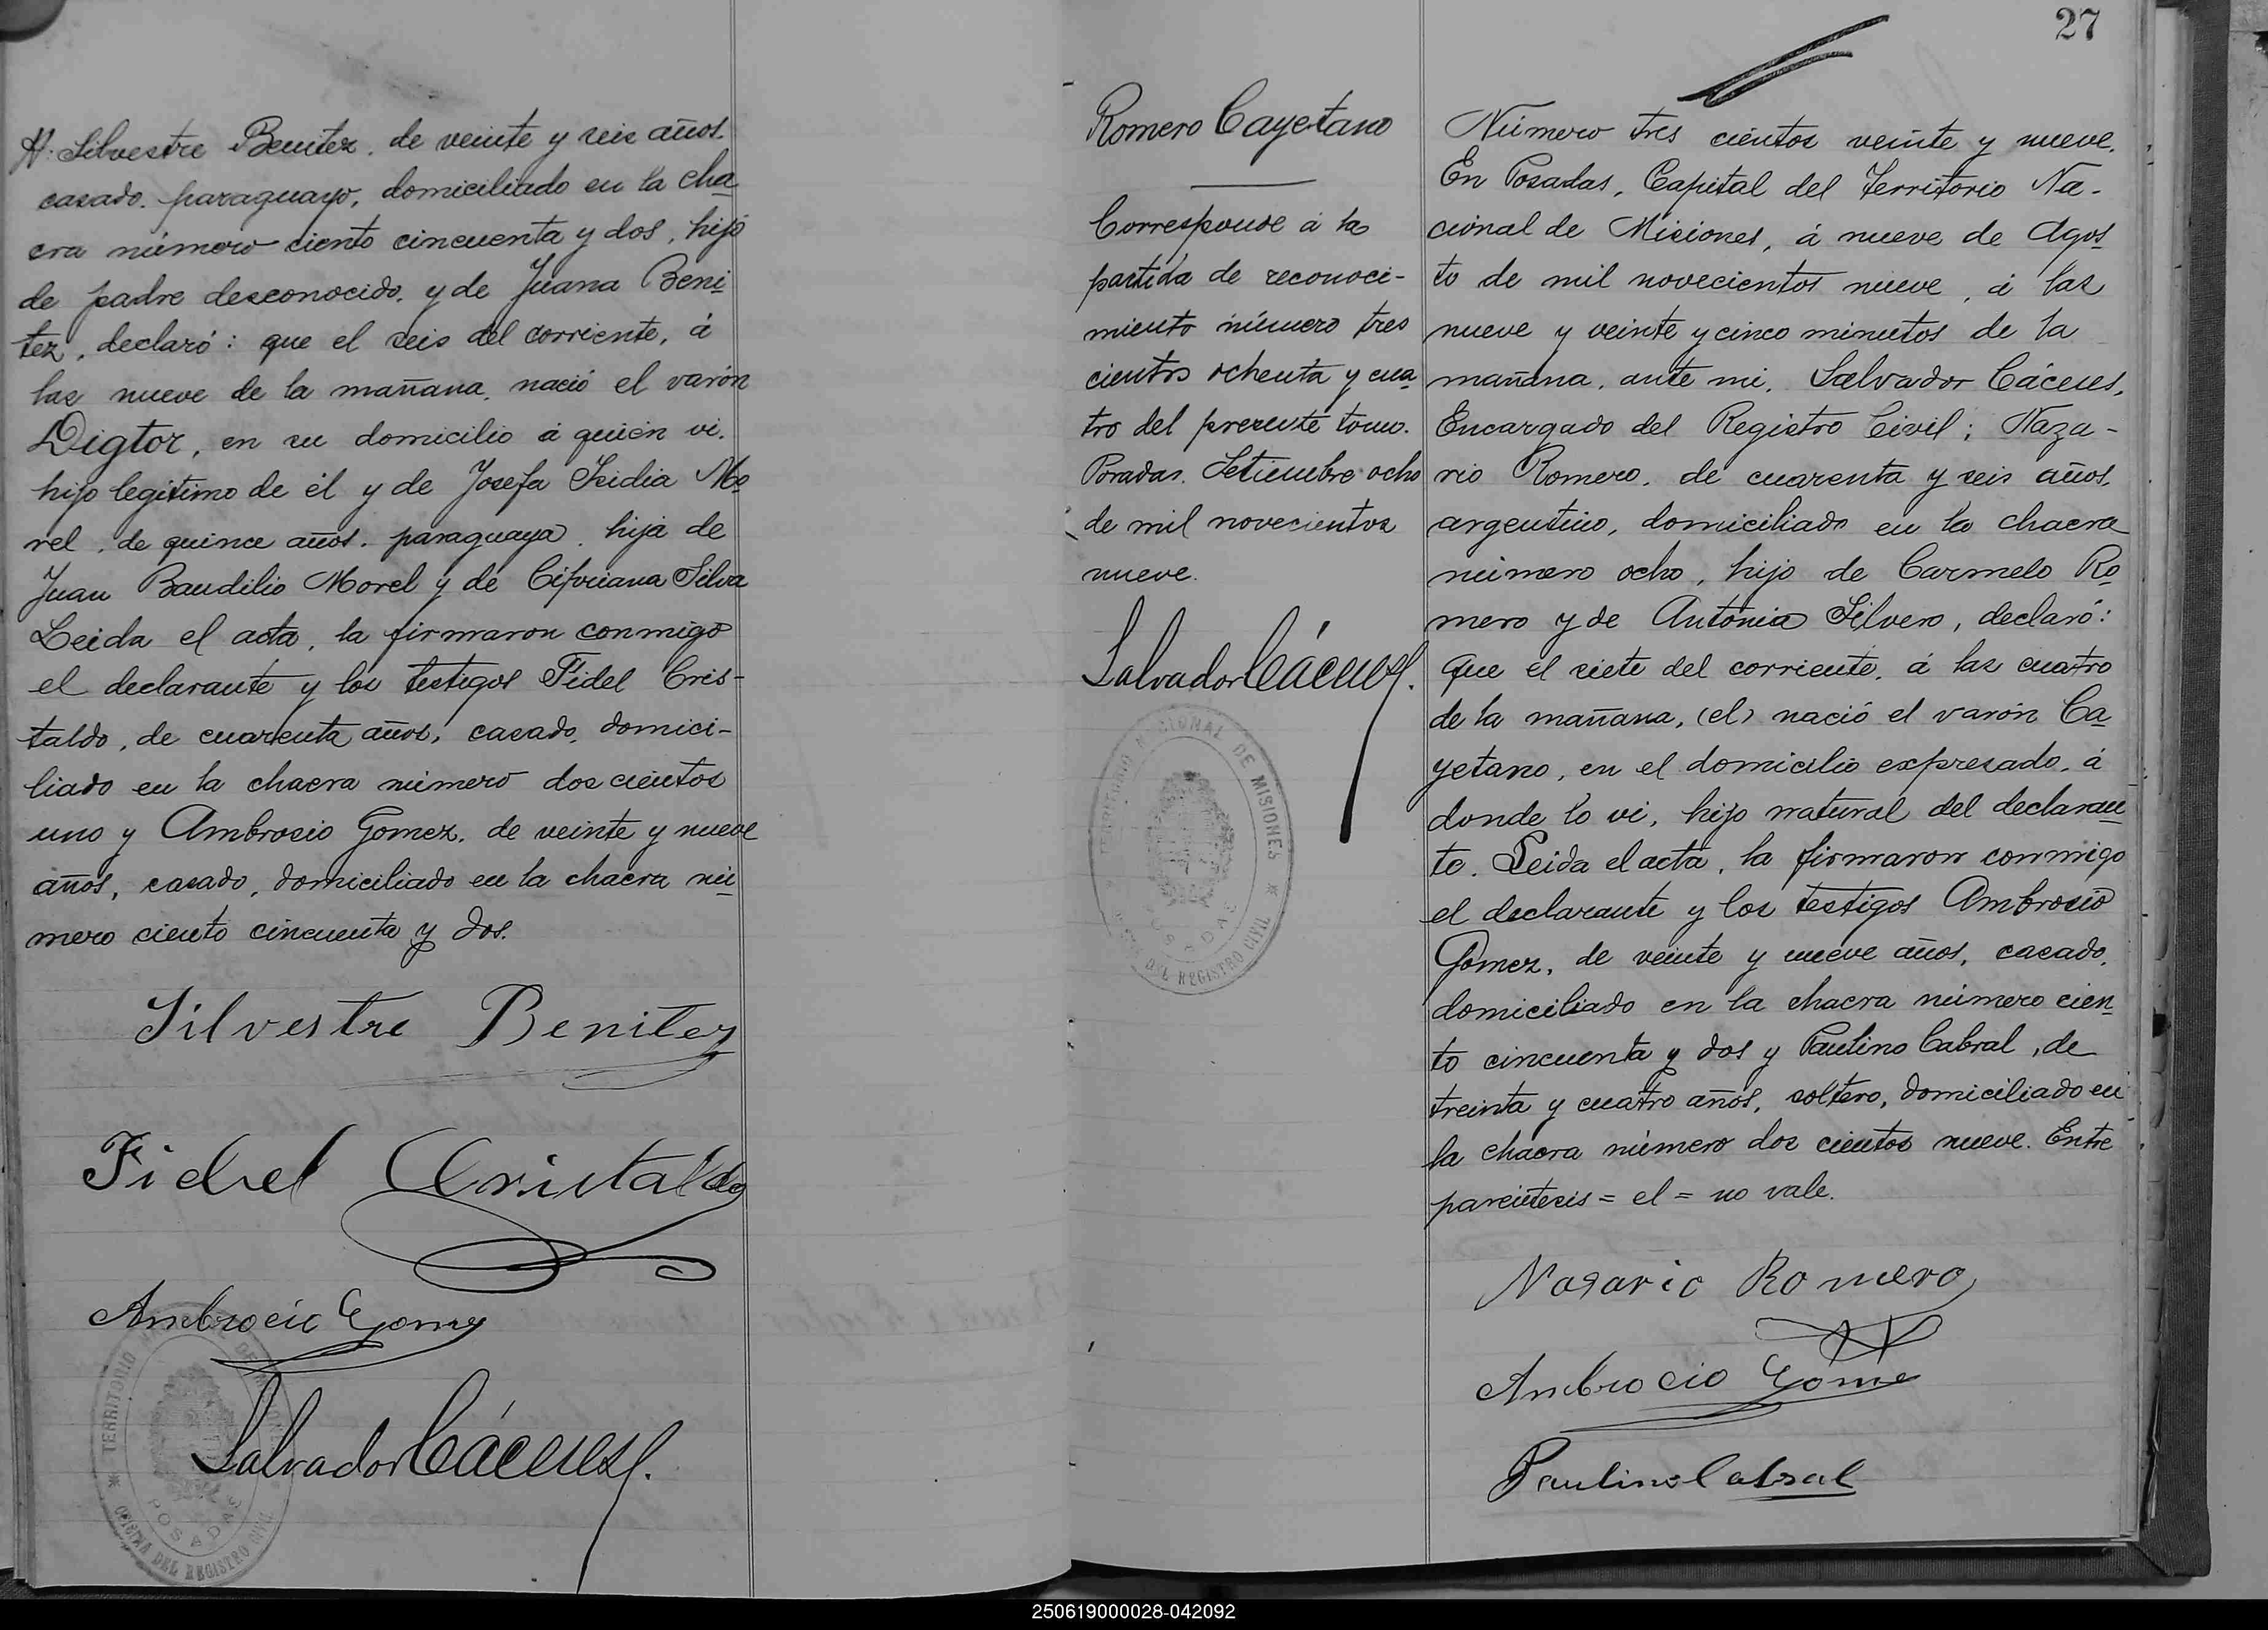 Silvestre Benitez, de veinte y seis años.
casado. paraguayo, domiciliado en la cha
cra número ciento cincuenta y dos, hijo
de padre desconocido, y de Juana Beni
tez, declaró: que el seis del corriente, á
las nueve de la mañana, nació el varón
Digtor, en su domicilio á quién vi.
hijo legitimo de él y de Josefa Isidia Mo
rel, de quince años. paraguaya, hija de
Juan Baudilio Morel y de Cipriana Silva
Leida el acta, la firmaron conmigo
el declarante y los testigos Fidel Cris-
taldo, de cuarenta años, casado, domici-
liado en la chacra número dos cientos
uno y Ambrosio Gomez, de veinte y nueve
años, casado, domiciliado en la chacra nú
mero ciento cincuenta y dos.
Silvestre Benitez
Fidel Cristaldo
Ambrocio Gomez
Salvador Cáceres
TERRITORIO
POSADAS
OFICINA DEL REGISTRO CIVIL
27
Romero Cayetano
Corresponde á la
partida de reconoci-
miento número tres
cientos ochenta y cua
tro del presente tomo.
Posadas. Setiembre ocho
de mil novecientos
nueve.
Salvador Cáceres
TERRITORIO NACIONAL DE MISIONES
POSADAS
DEL REGISTRO CIVIL
Número tres cientos veinte y nueve.
En Posadas, Capital del Territorio Na-
cional de Misiones, á nueve de Agos
to de mil novecientos nueve, á las
nueve y veinte y cinco minutos de la
mañana, ante mi, Salvador Cáceres,
Encargado del Registro Civil; Naza-
rio Romero, de cuarenta y seis años,
argentino, domiciliado en la chacra
número ocho, hijo de Carmelo Ro
mero y de Antonia Silvero, declaró:
que el siete del corriente, á las cuatro
de la mañana, (el) nació el varón Ca
yetano, en el domicilio expresado, á
donde lo vi, hijo natural del declaran
te. Leida el acta, la firmaron conmigo
el declarante y los testigos Ambrosio
Gomez, de veinte y nueve años, casado,
domiciliado en la chacra número cien
to cincuenta y dos y Paulino Cabral, de
treinta y cuatro años, soltero, domiciliado en
la chacra número dos cientos nueve. Entre
paréntesis = el = no vale.
Nasario Romero
Ambrocio Gome
Paulino Cabral
250619000028-042092